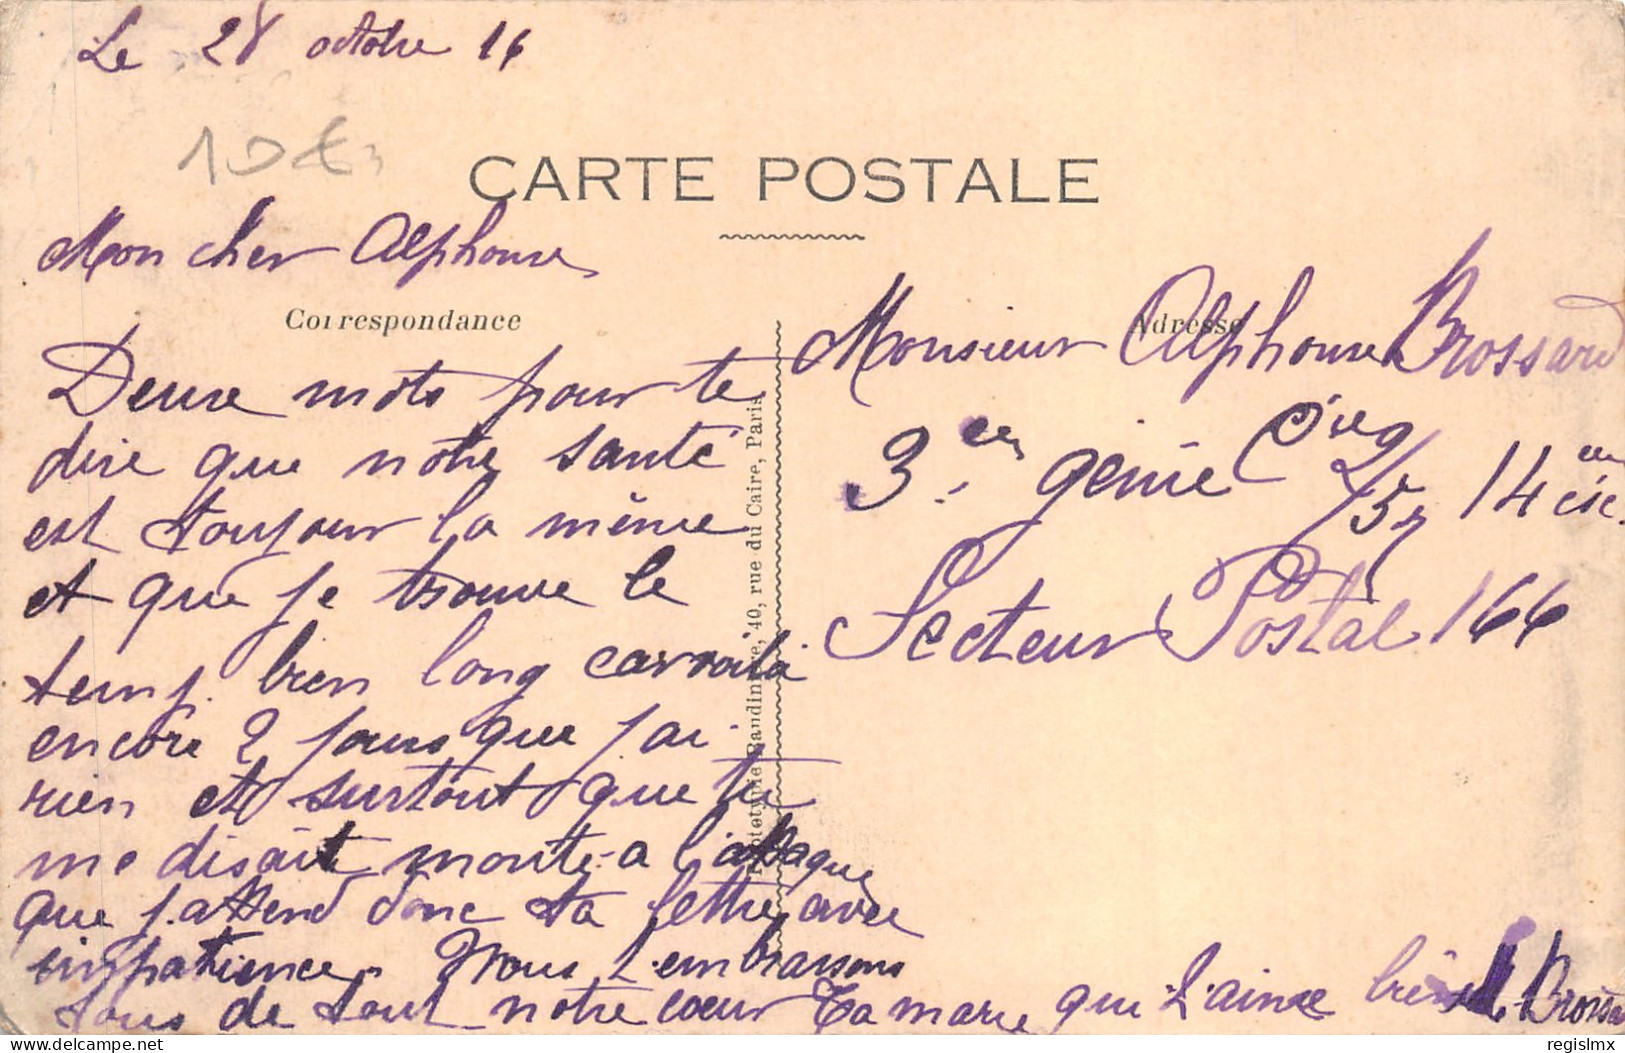 Le 28 octobre 16
10€
CARTE POSTALE
Mon cher Alphonse
Correspondance
Deux mots pour te
dire que notre santé
est toujour la même
et que je trouve le
temps bien long car voilà
encore 2 jours que j'ai
rien et surtout que tu
me disait monté a l'attaque
que j'attend donc ta lettre avec
impatience. Nous t'embrassons
tous de tout notre cœur Ta marie que t'aime bien M. Brossard
Phototypie Baudinière, 40, rue du Caire, Paris
Adresse
Monsieur Alphonse Brossard
3em génie Cie 14em
Secteur Postal 166
delcampe.net
regislmx